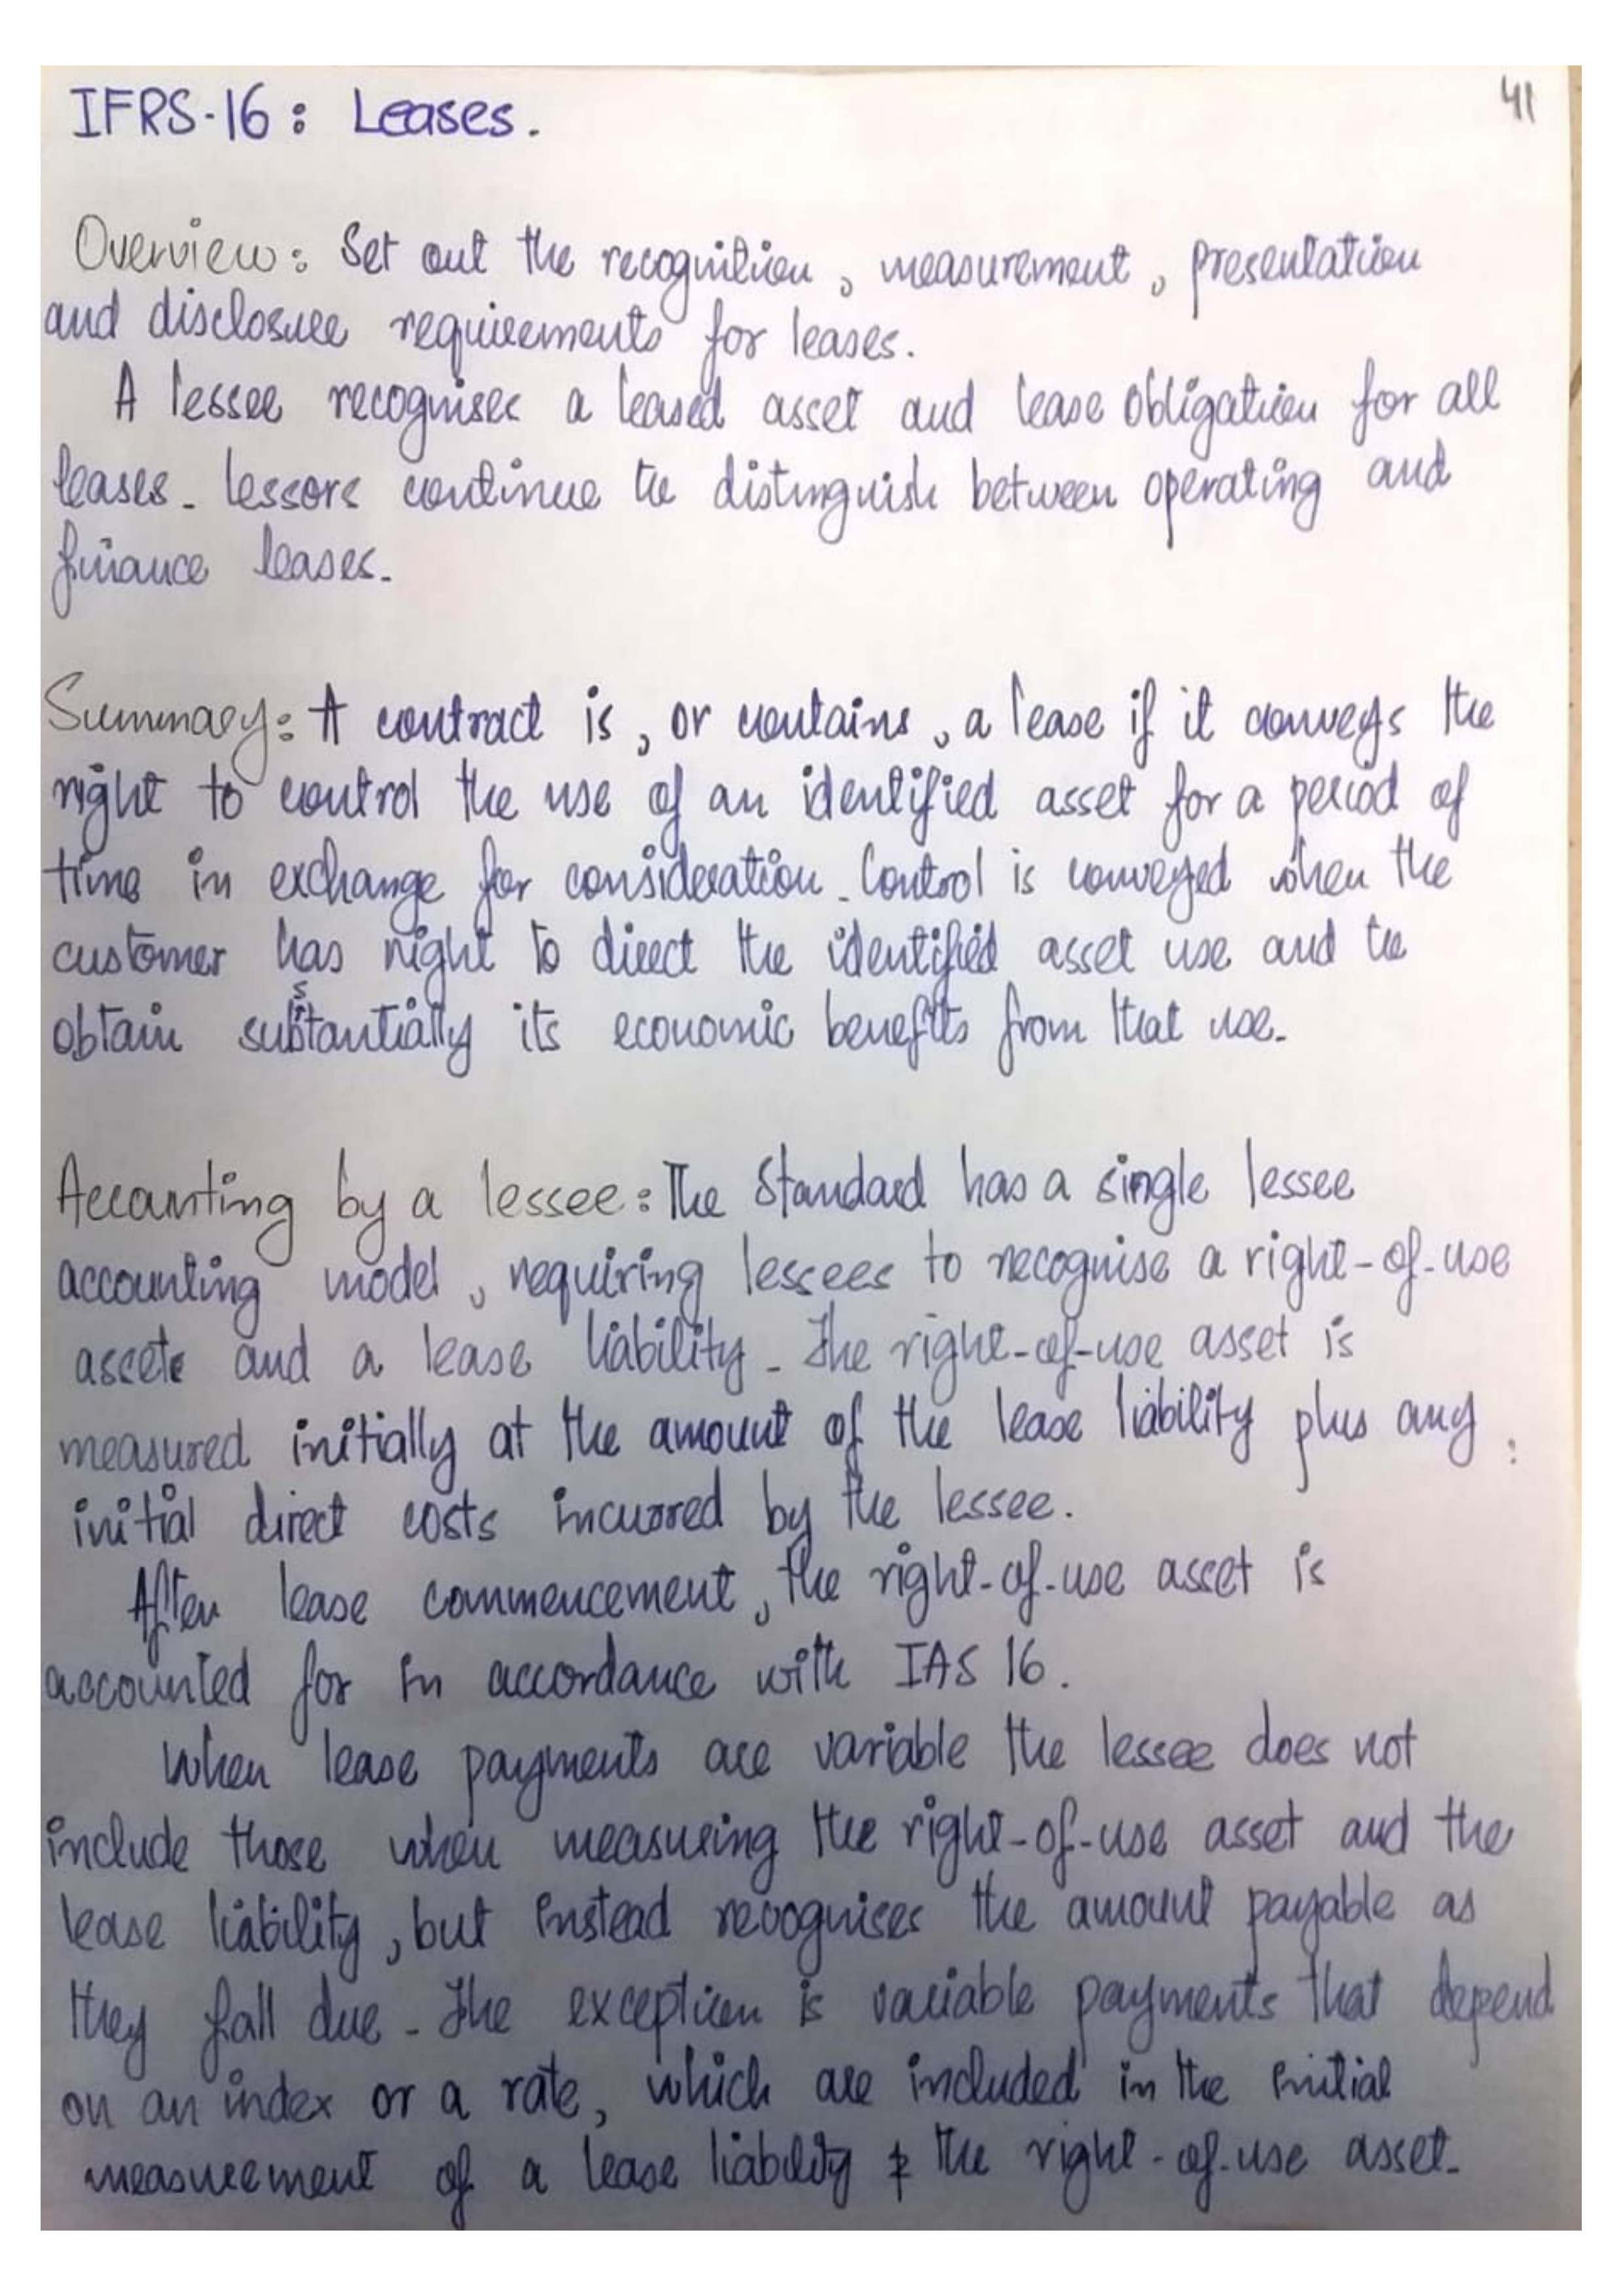 IFRS-16: Leases.
41
Overview: Set out the recognition, measurement, presentation
and disclosure requirements for leases.
A lessee recognises a leased asset and lease obligation for all
leases. lessors continue to distinguish between operating and
finance leases.
Summary: A contract is, or contains, a lease if it conveys the
right to control the use of an identified asset for a period of
time in exchange for consideration. Control is conveyed when the
customer has right to direct the identified asset use and to
obtain substantially its economic benefits from that use.
Accounting by a lessee: The Standard has a single lessee
accounting model, requiring lessees to recognise a right-of-use
assets and a lease liability. The right-of-use asset is
measured initially at the amount of the lease liability plus any
initial direct costs incurred by the lessee.
After lease commencement, the right-of-use asset is
accounted for in accordance with IAS 16.
When lease payments are variable the lessee does not
include those when measuring the right-of-use asset and the
lease liability, but instead recognises the amount payable as
they fall due. The exception is variable payments that depend
on an index or a rate, which are included in the initial
measurement of a lease liability & the right-of-use asset.